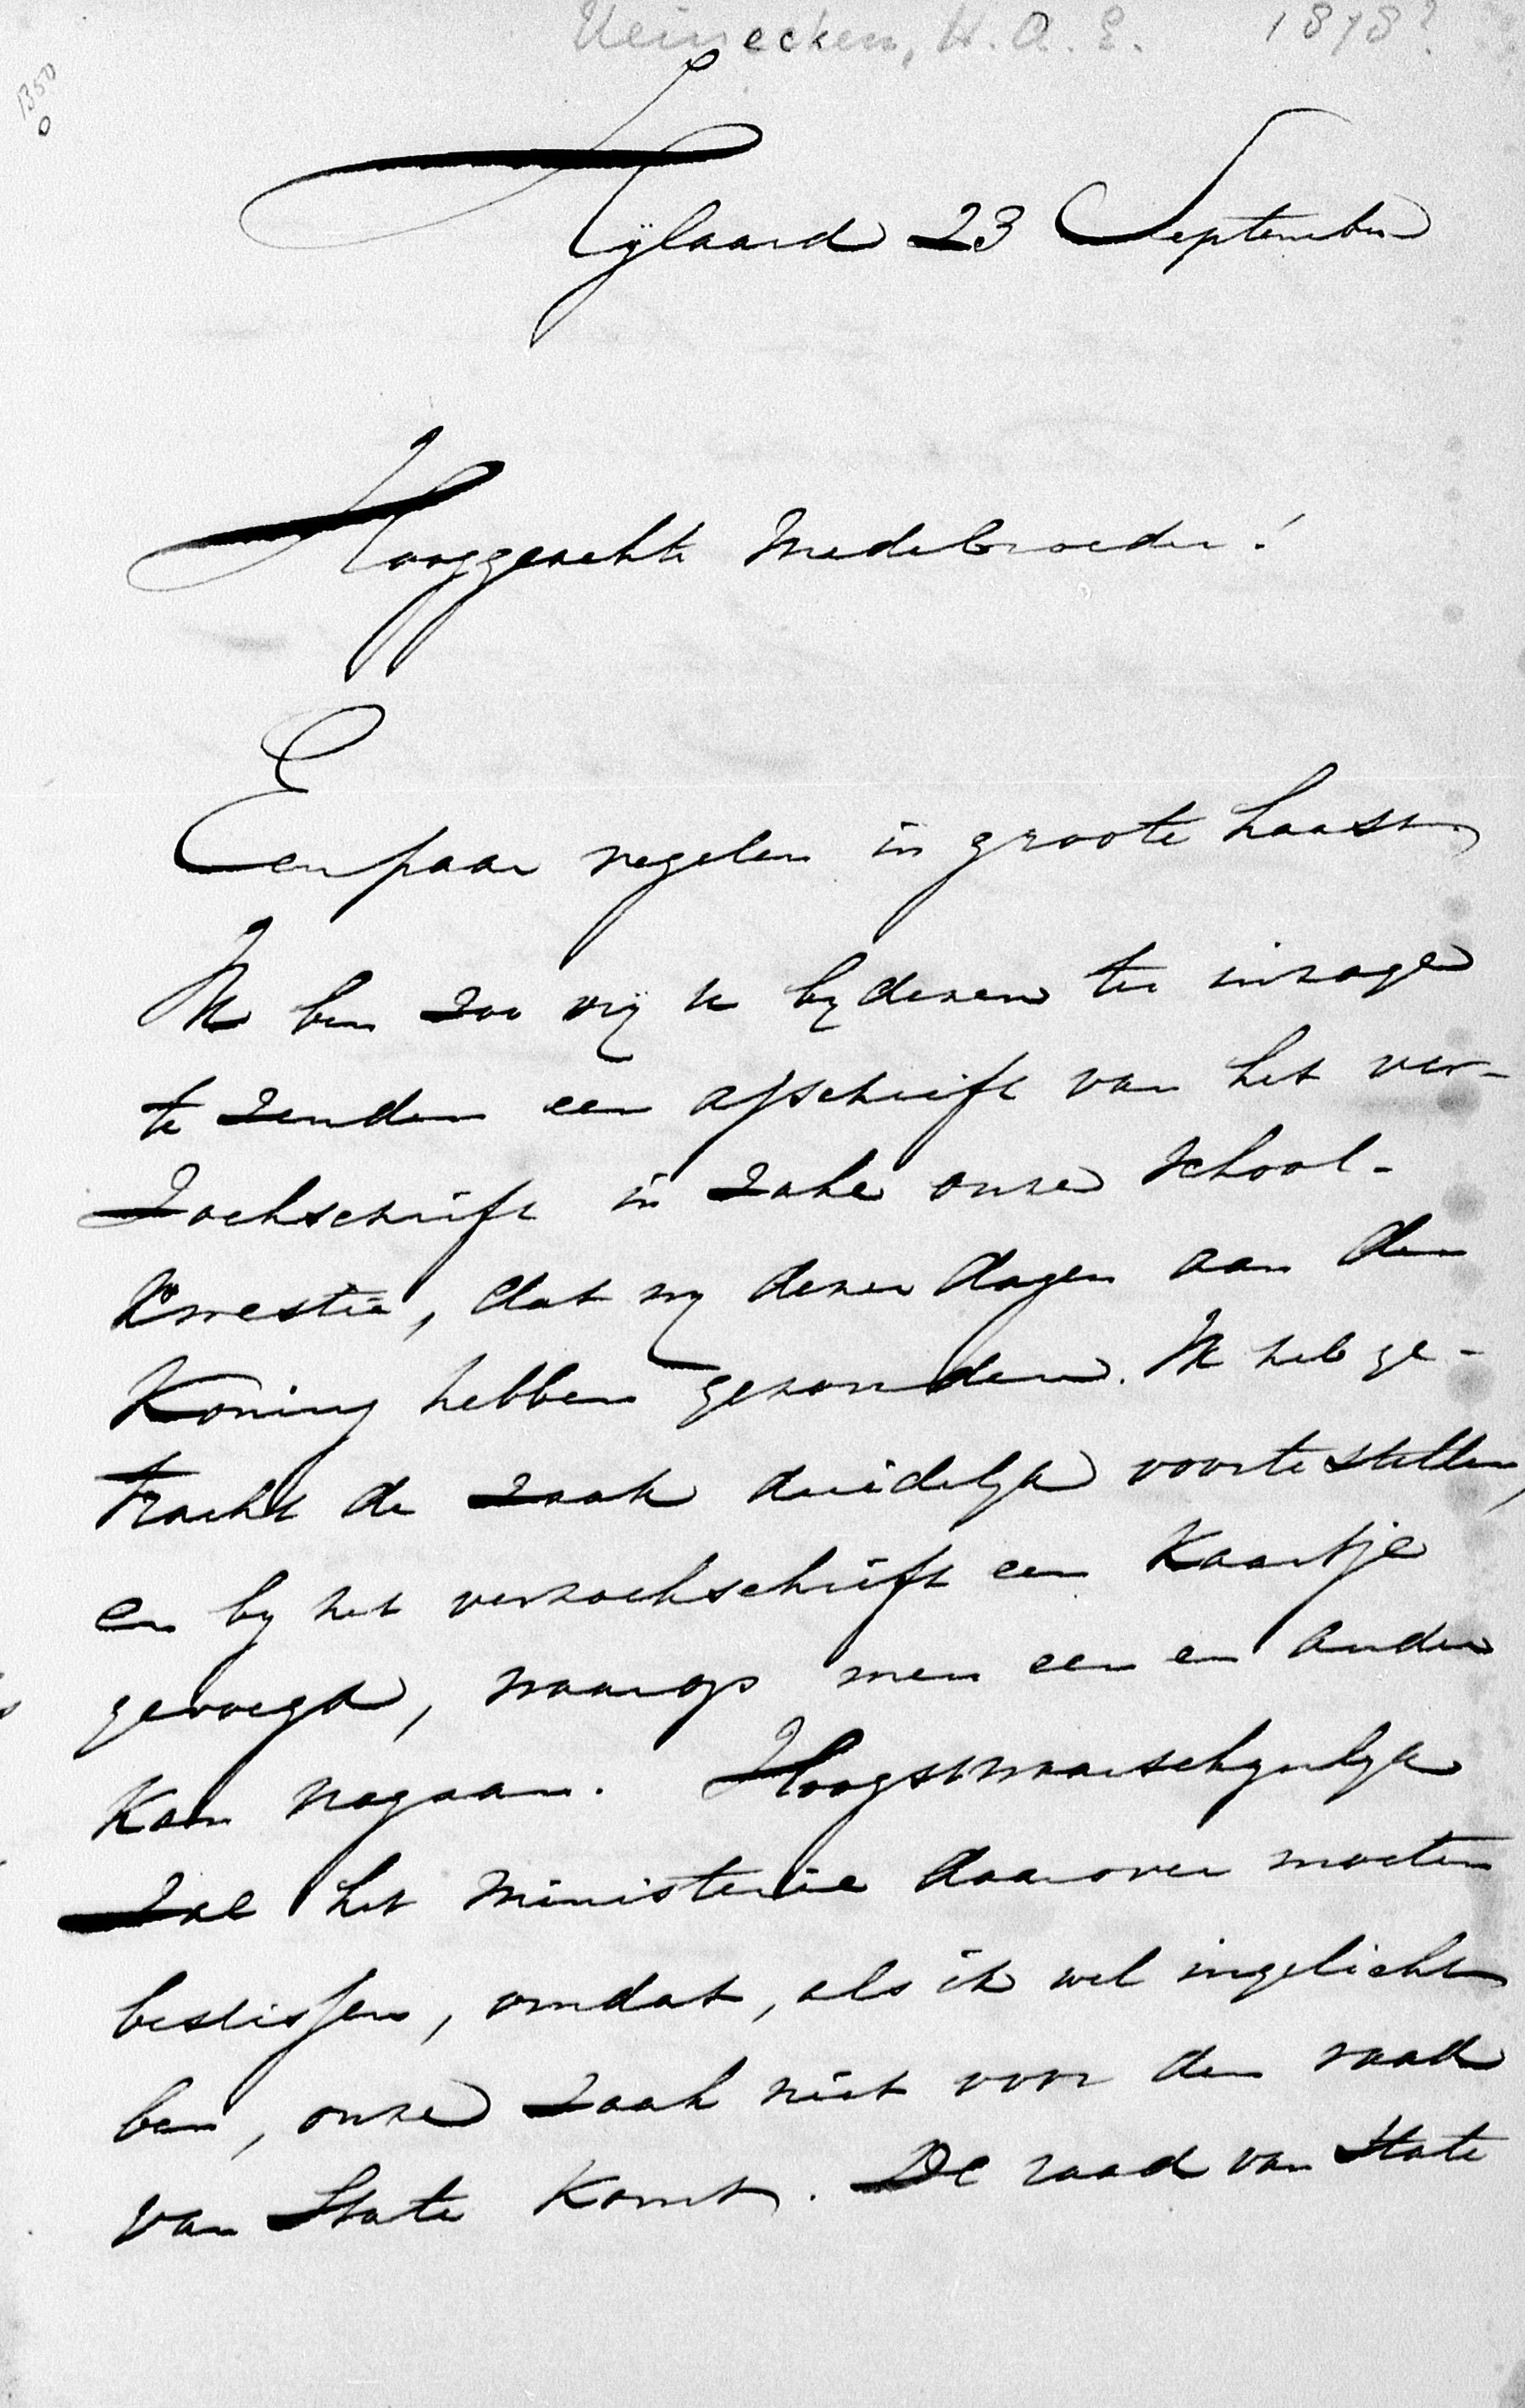 Heinecken, H. A. E. 1878?
1350
Hylaard 23 September
Hooggeachte Medebroeder!
Een paar regelen in groote haast
Ik ben zoo vrij U bij dezen ter inzage
te zenden een afschrift van het ver-
zoekschrift in zake onze school-
kwestie, dat wij dezer dagen aan den
Koning hebben gezonden. Ik heb ge-
tracht de zaak duidelijk voortestellen,
en bij het verzoekschrift een kaartje
gevoegd, waarop men een en ander
kan nagaan. Hoogstwaarschijnlijk
zal het Ministerie daarover moeten
beslissen, omdat, als ik wel ingelicht
ben, onze zaak niet voor den raad
van State komt. De raad van State